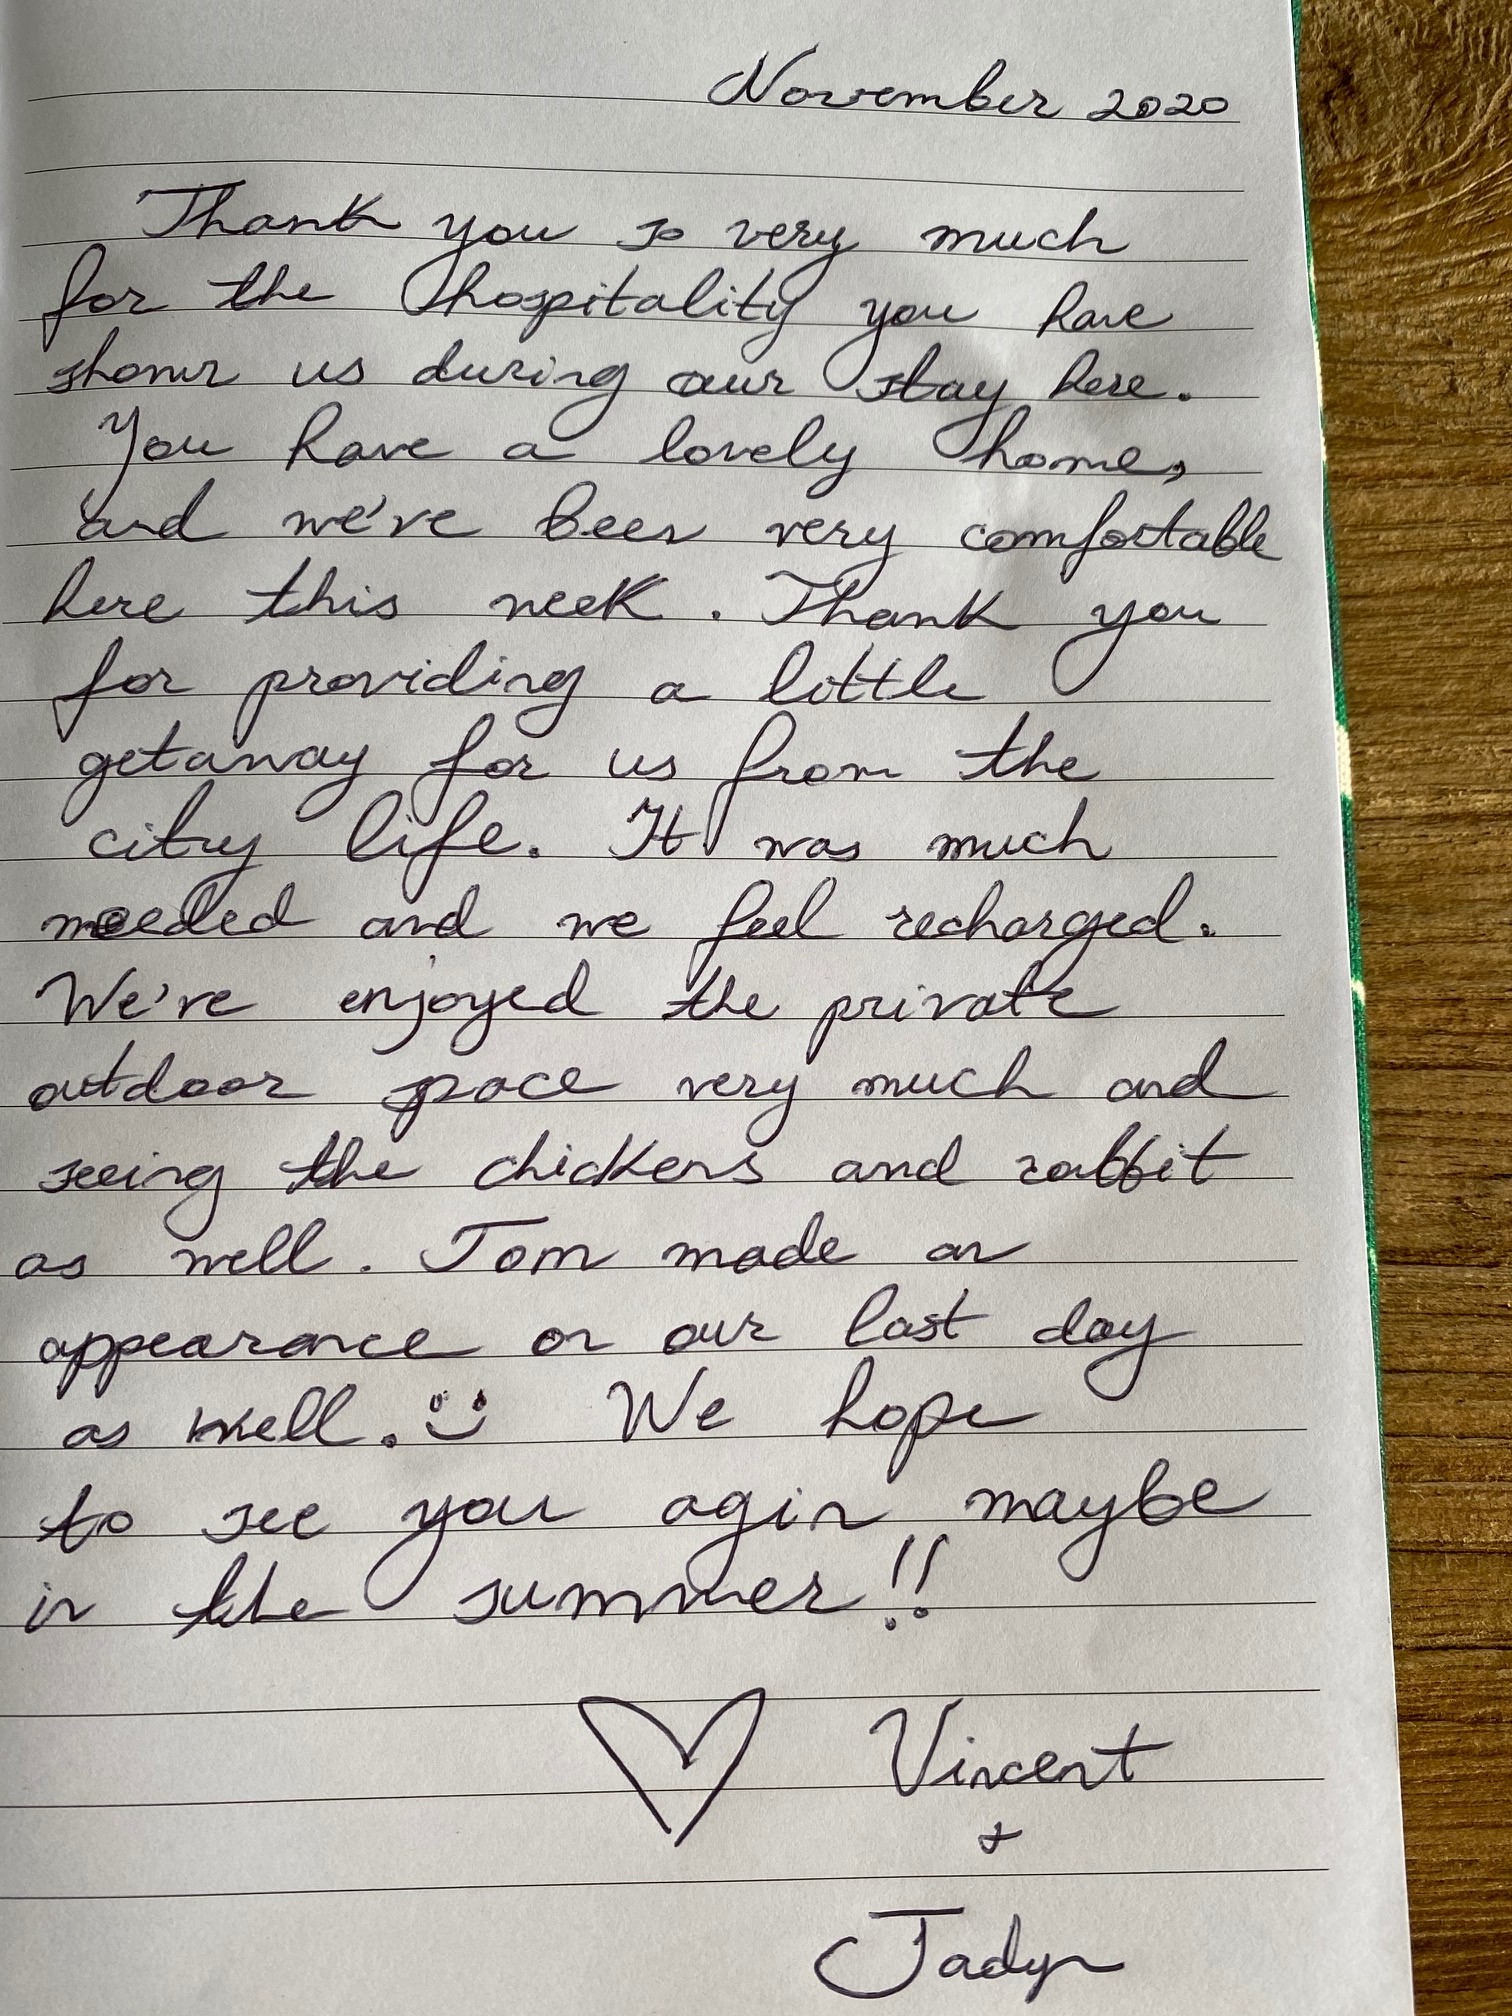 November 2020
Thank you so very much
for the hospitality you have
shown us during our stay here.
You have a lovely home,
and we've been very comfortable
here this week. Thank you
for providing a little
getaway for us from the
city life. It was much
needed and we feel recharged.
We've enjoyed the private
outdoor space very much and
seeing the chickens and rabbit
as well. Tom made an
appearance on our last day
as well. :) We hope
to see you agin maybe
in the summer!!
♡ Vincent
+
Jadyn